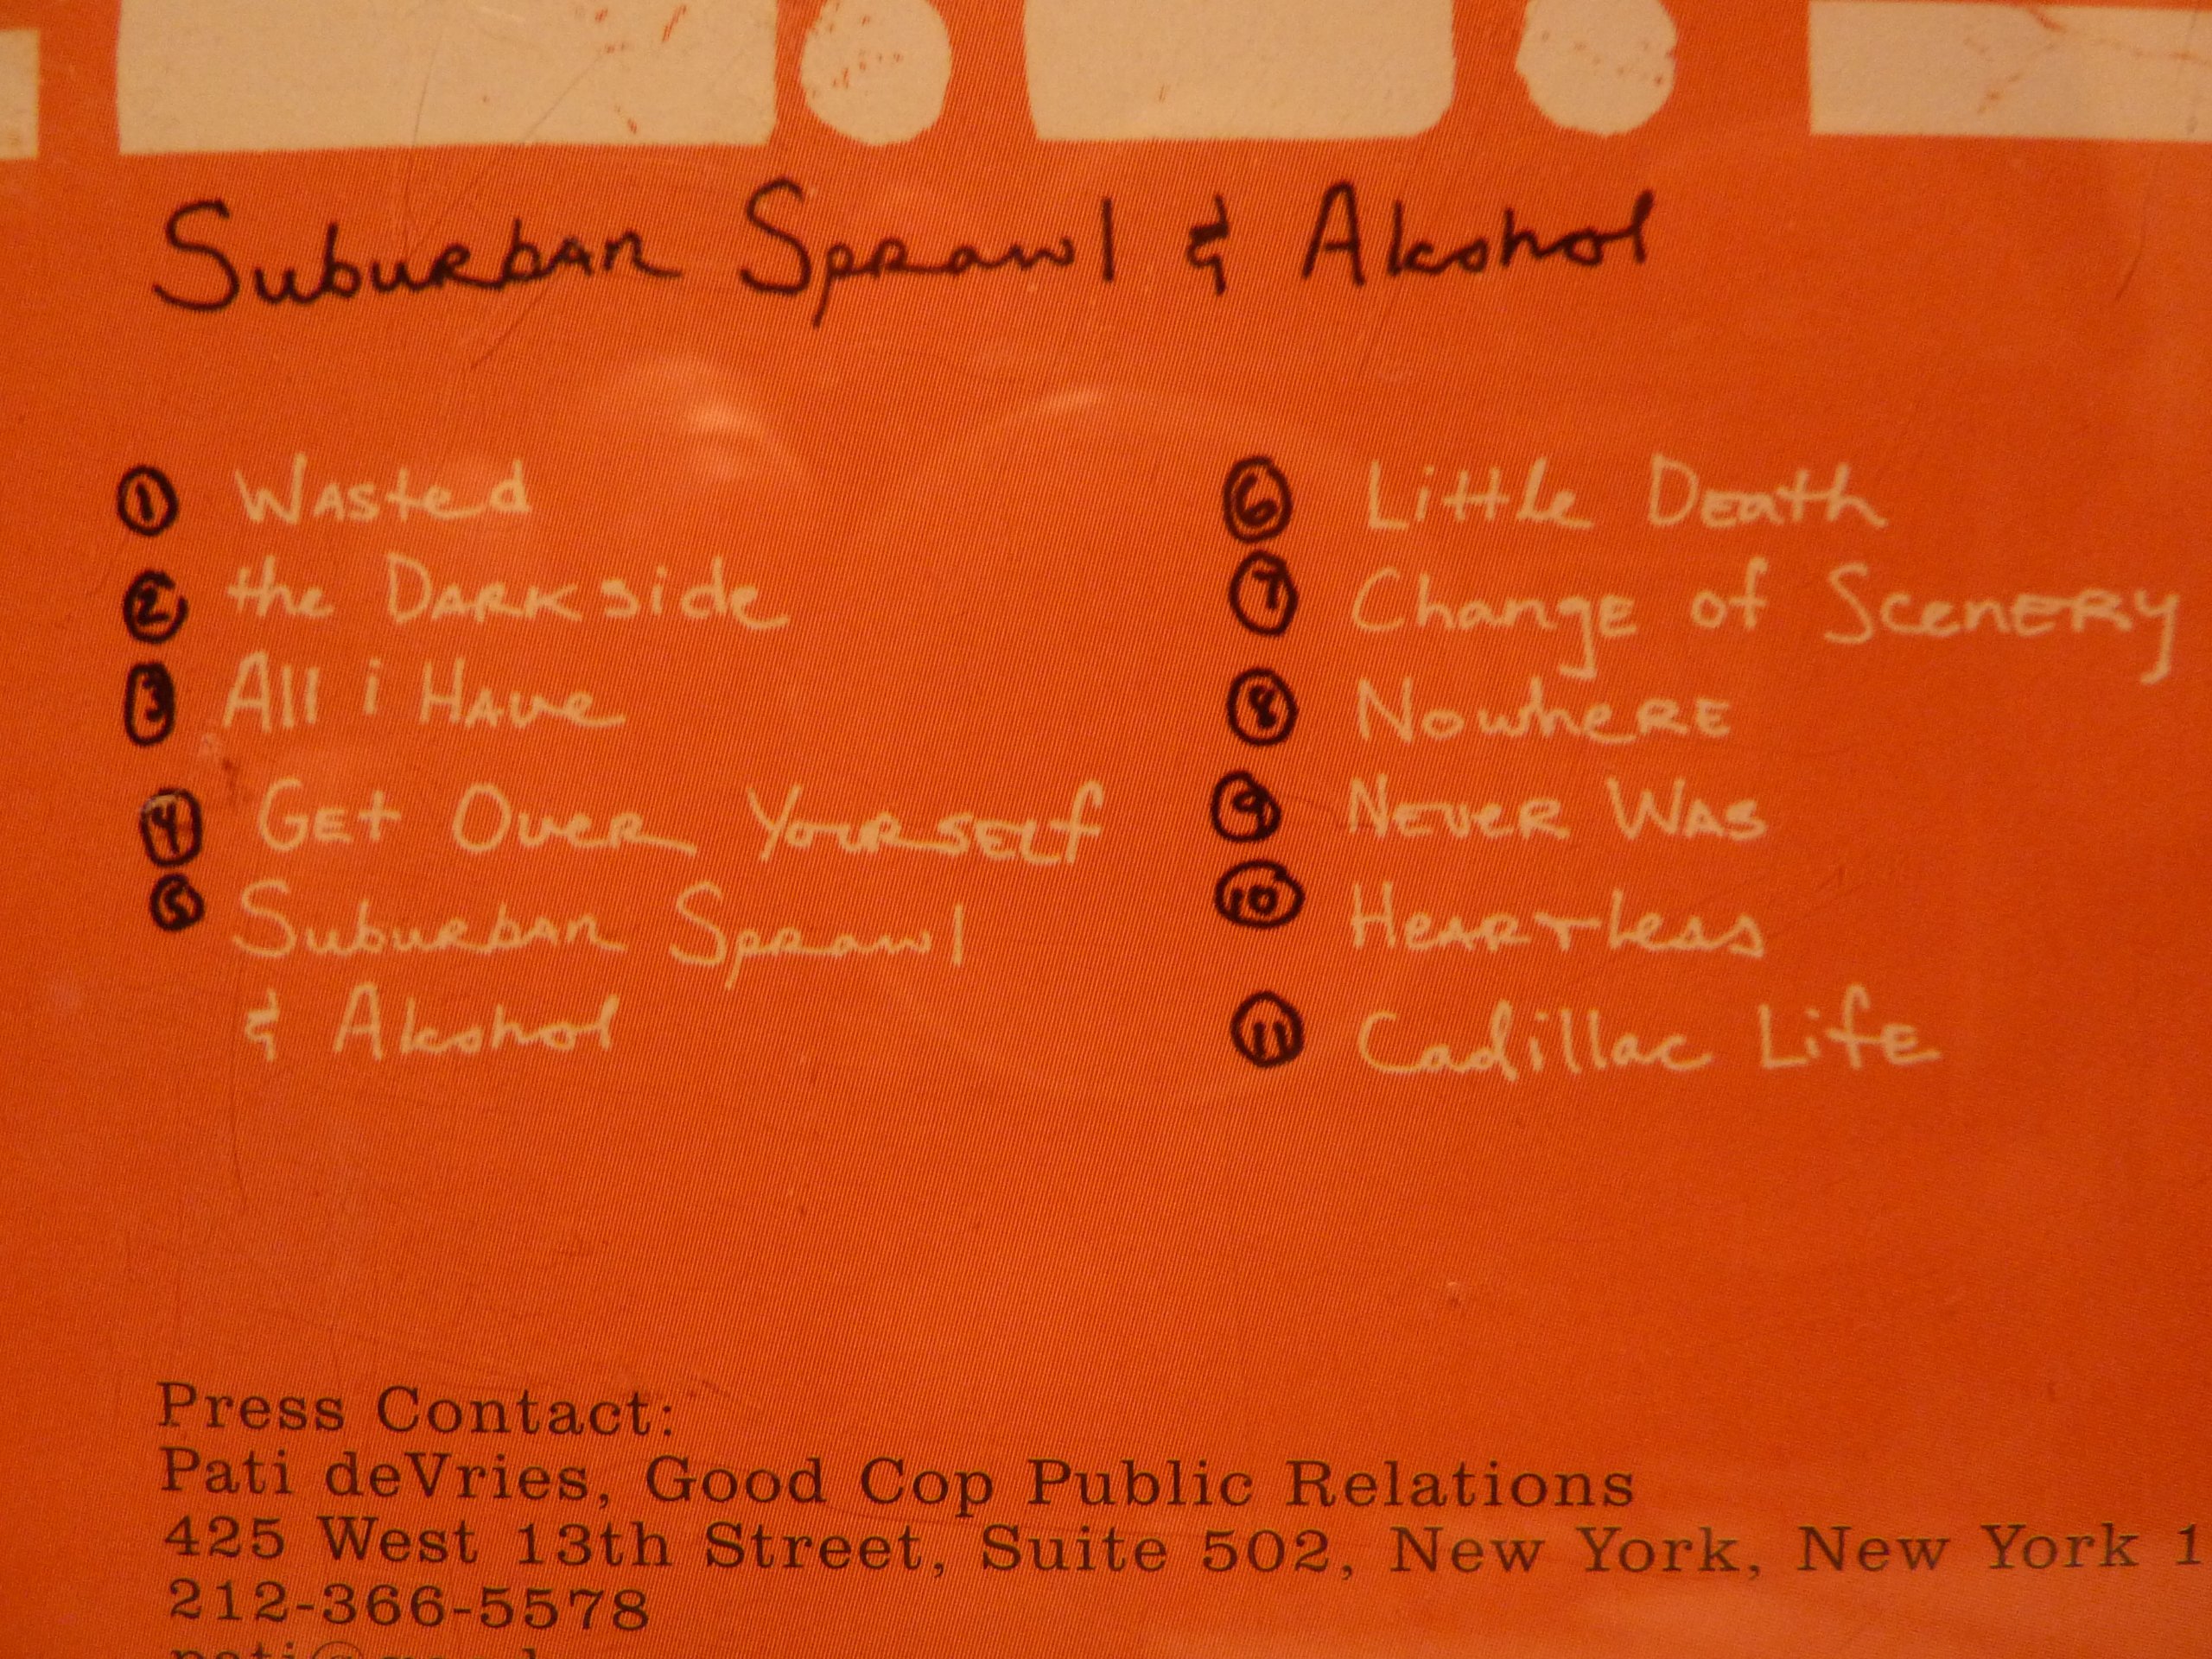 Suburban Sprawl & Alkohol
① Wasted
② the Darkside
③ All i Have
④ Get Over Yourself
⑤ Suburban Sprawl
& Alkohol
⑥ Little Death
⑦ Change of Scenery
⑧ Nowhere
⑨ Never Was
⑩ Heartless
⑪ Cadillac Life
Press Contact:
Pati deVries, Good Cop Public Relations
425 West 13th Street, Suite 502, New York, New York 1
212-366-5578